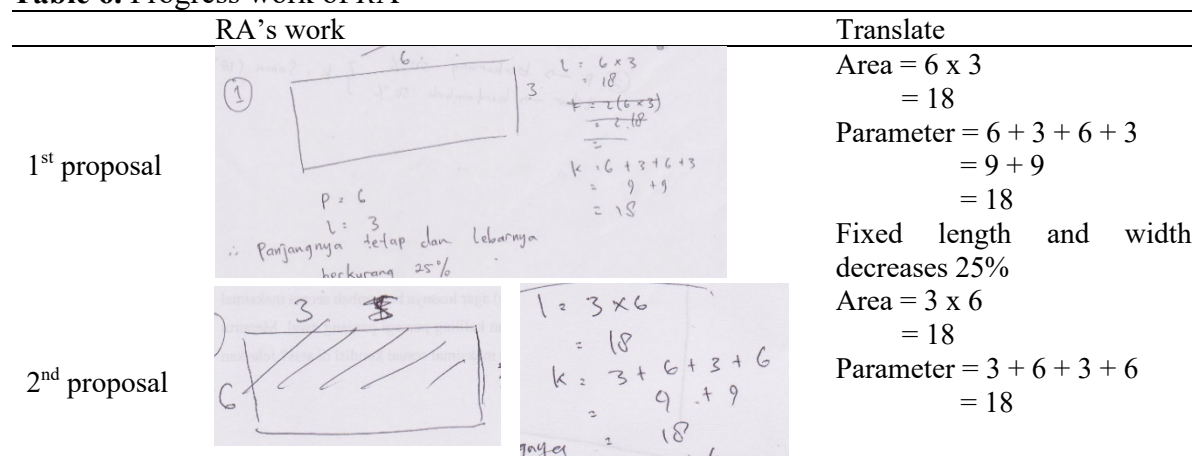 Table 6. Progress work of RA
RA's work
Translate
1st proposal
1
6
3
l = 6 x 3
= 18
k = 2(6x3)
= 2.18
=
k = 6 + 3 + 6 + 3
= 9 + 9
= 18
P = 6
l = 3
∴ Panjangnya tetap dan lebarnya
berkurang 25%
Area = 6 x 3
= 18
Parameter = 6 + 3 + 6 + 3
= 9 + 9
= 18
Fixed length and width
decreases 25%
2nd proposal
3
6
l = 3 x 6
= 18
k = 3 + 6 + 3 + 6
= 9 + 9
= 18
Area = 3 x 6
= 18
Parameter = 3 + 6 + 3 + 6
= 18